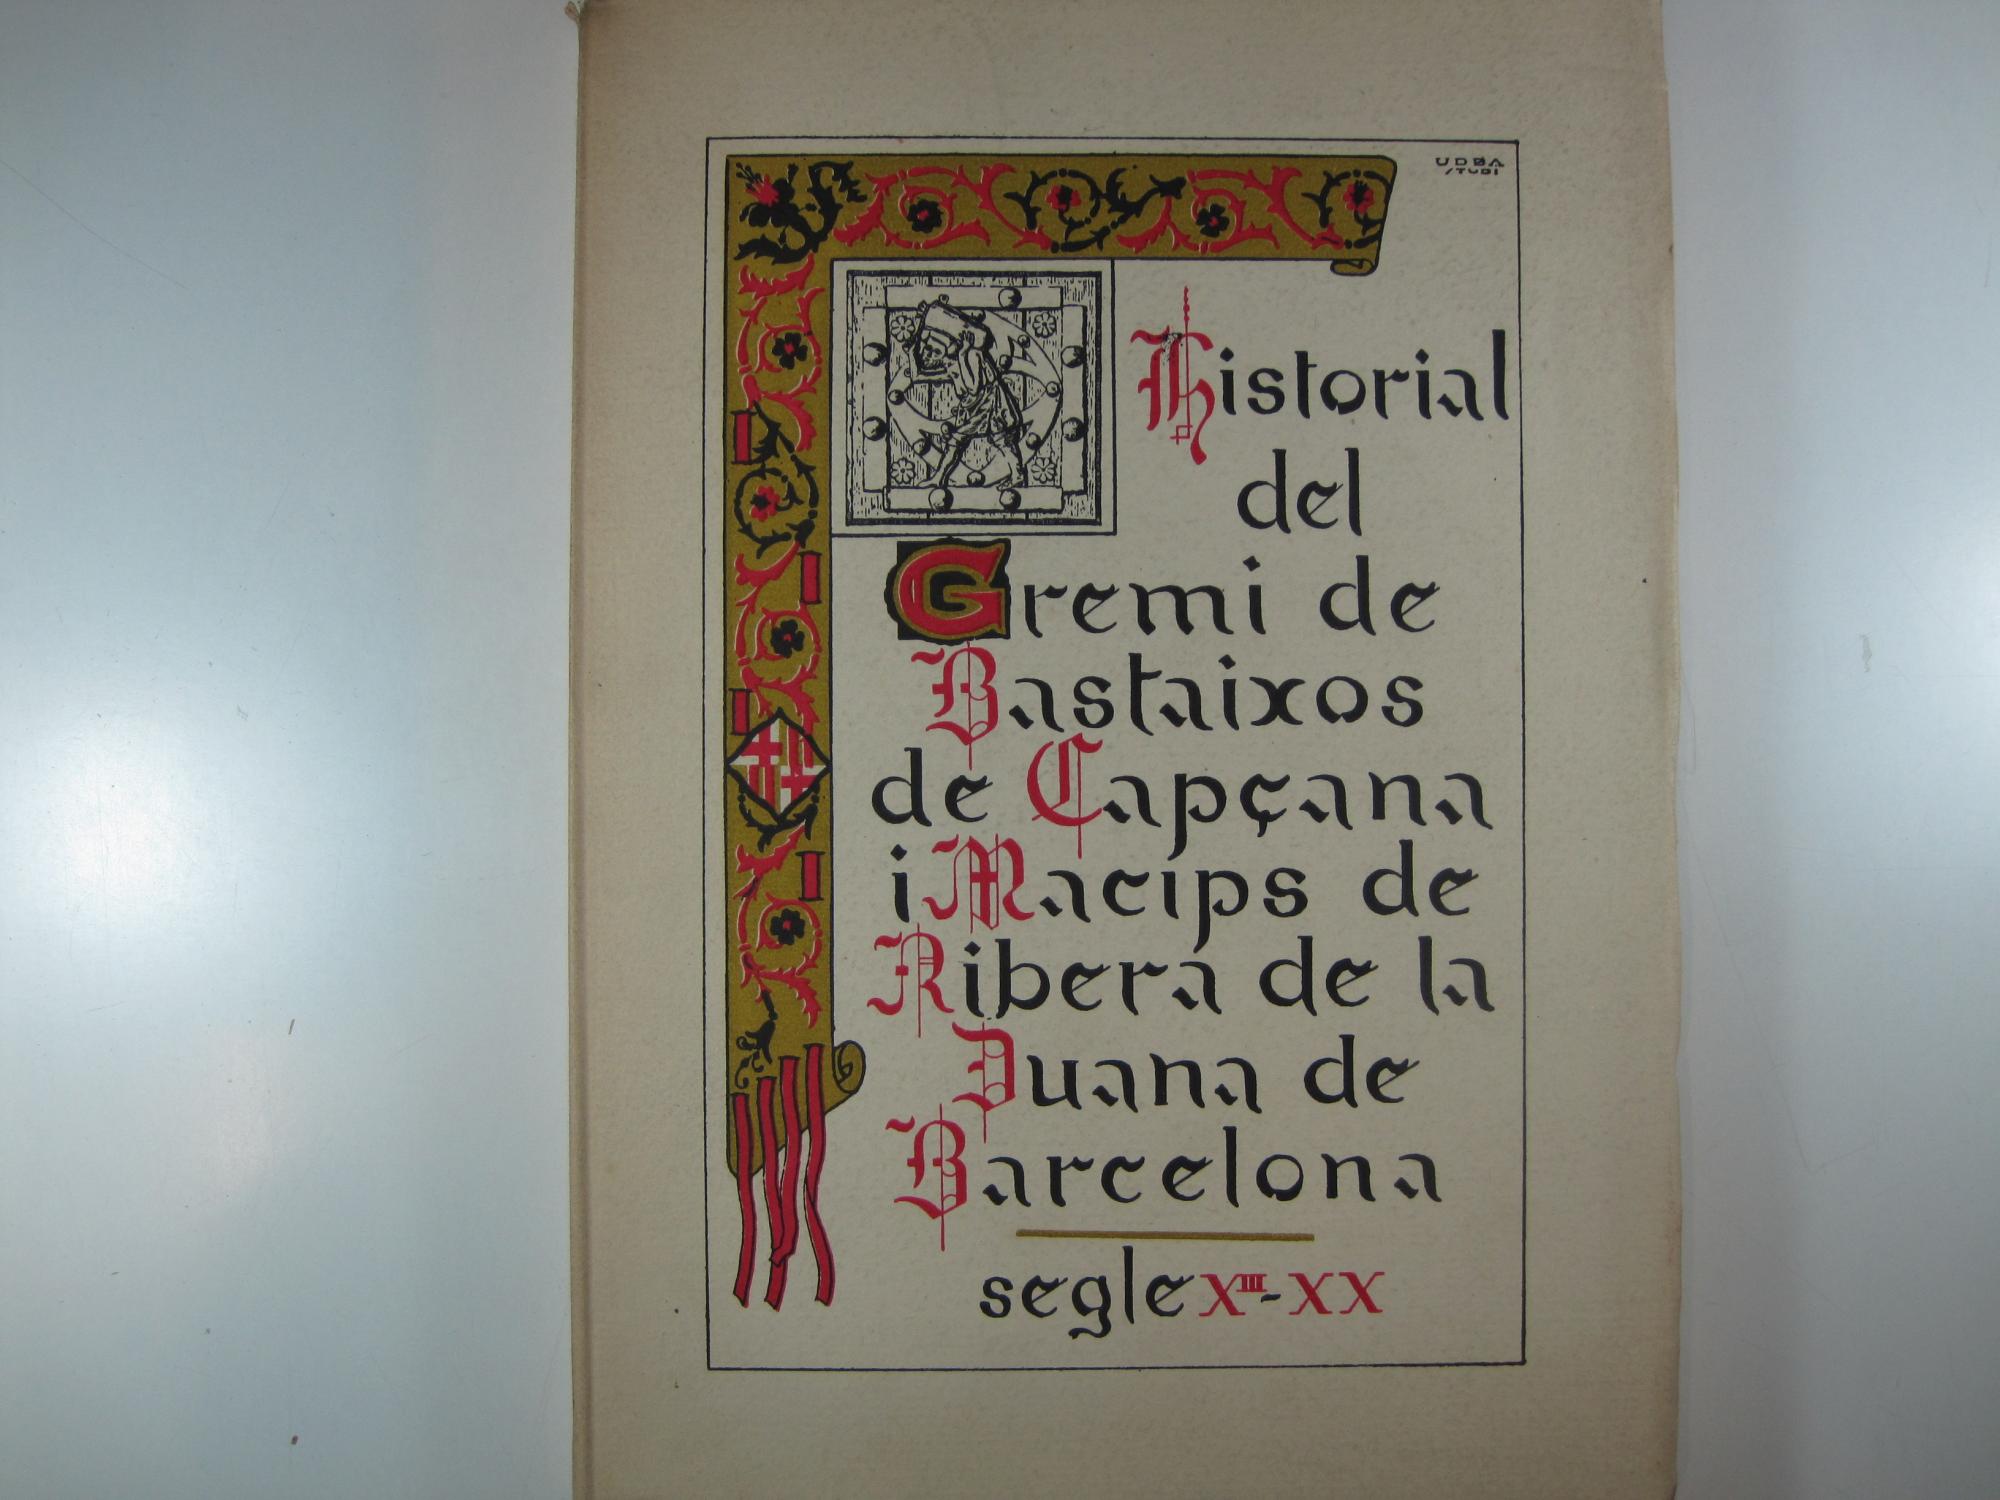 UDBA
STUDI
Historial
del
Gremi de
Bastaixos
de Capçana
i Macips de
Ribera de la
Duana de
Barcelona
segle XIII-XX